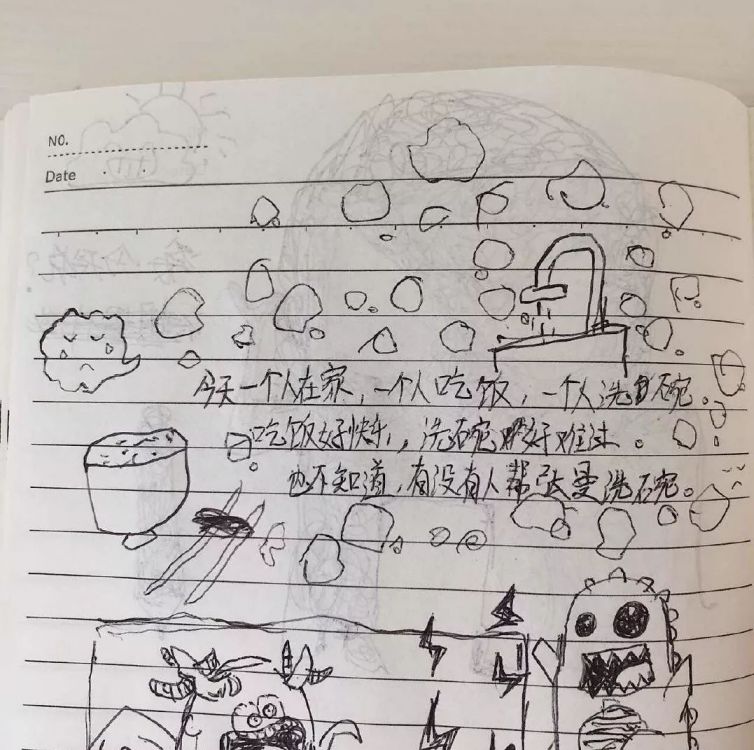 NO.
Date
今天一个人在家，一个人吃饭，一个人洗碗。
吃饭好快乐，洗碗好难过。
也不知道，有没有人帮洗碗。